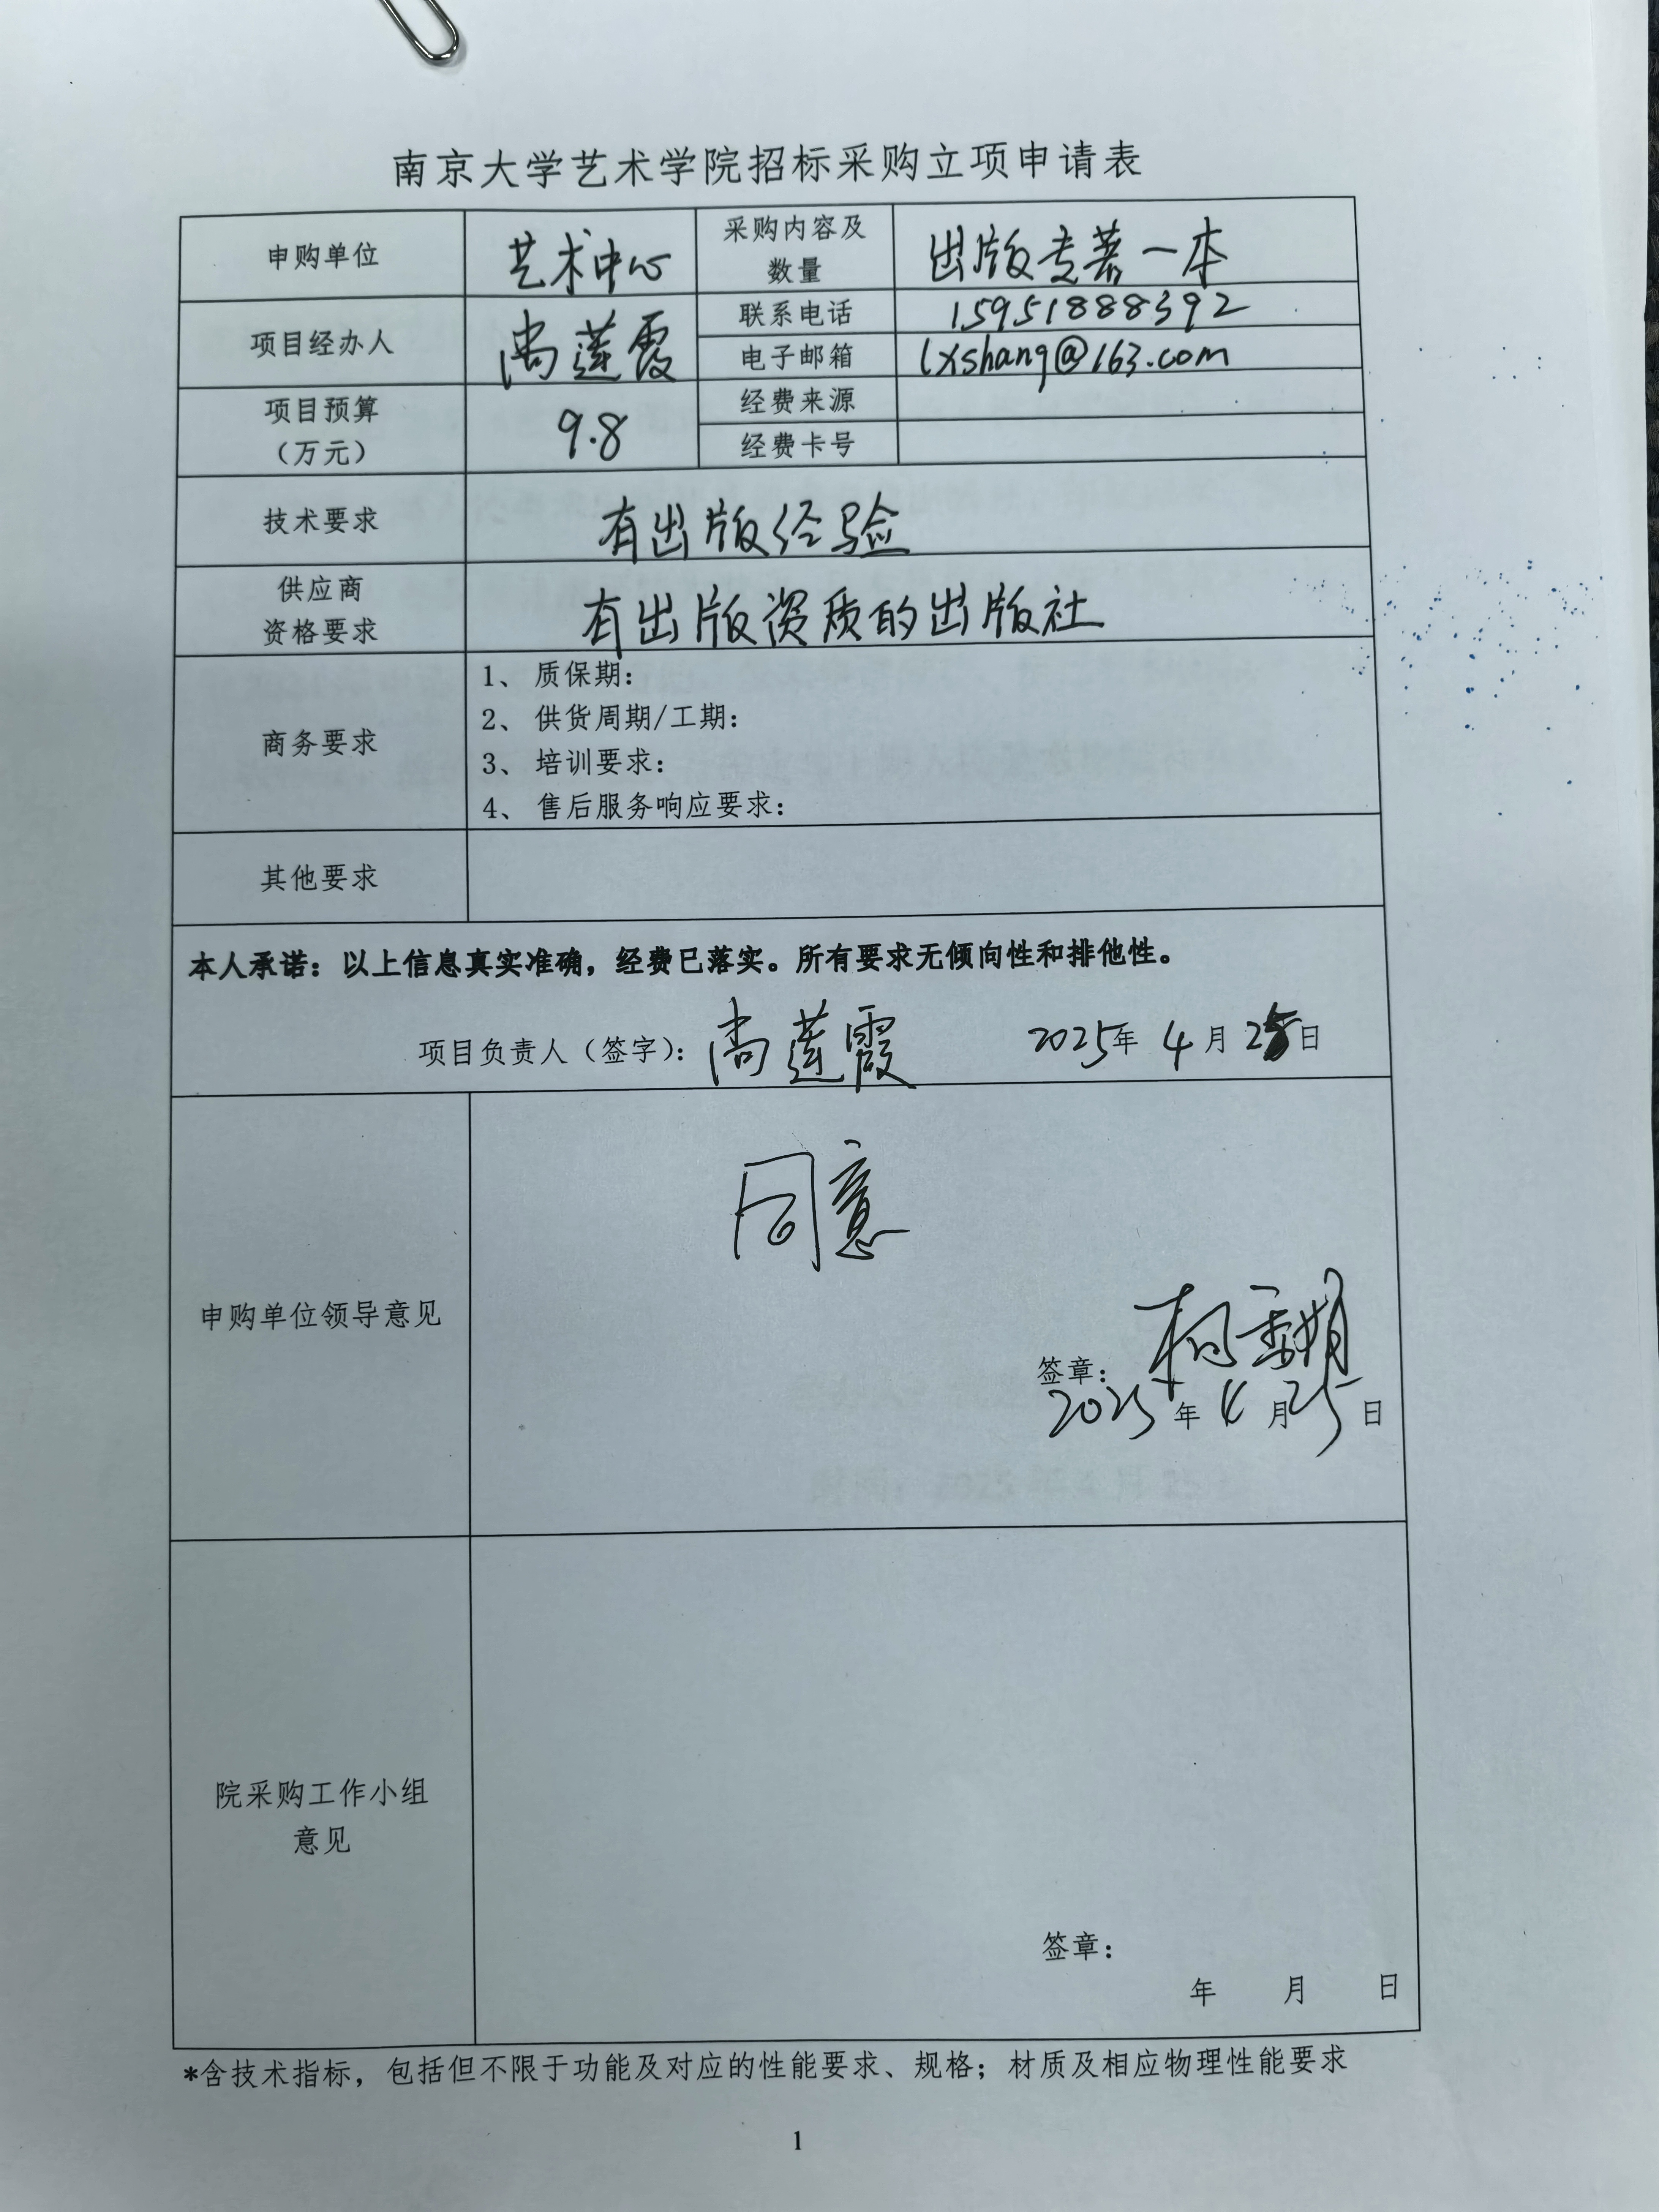 南京大学艺术学院招标采购立项申请表
申购单位 艺术中心 采购内容及数量 出版专著一本
项目经办人 尚莲霞 联系电话 15951888392
电子邮箱 lxshang@163.com
项目预算（万元） 9.8 经费来源
经费卡号
技术要求 有出版经验
供应商资格要求 有出版资质的出版社
商务要求
1、 质保期：
2、 供货周期/工期：
3、 培训要求：
4、 售后服务响应要求：
其他要求
本人承诺：以上信息真实准确，经费已落实。所有要求无倾向性和排他性。
项目负责人（签字）：尚莲霞 2025年 4月 25日
同意
申购单位领导意见
签章：
2025年 4月 25日
院采购工作小组意见
签章：
年 月 日
*含技术指标，包括但不限于功能及对应的性能要求、规格；材质及相应物理性能要求
1